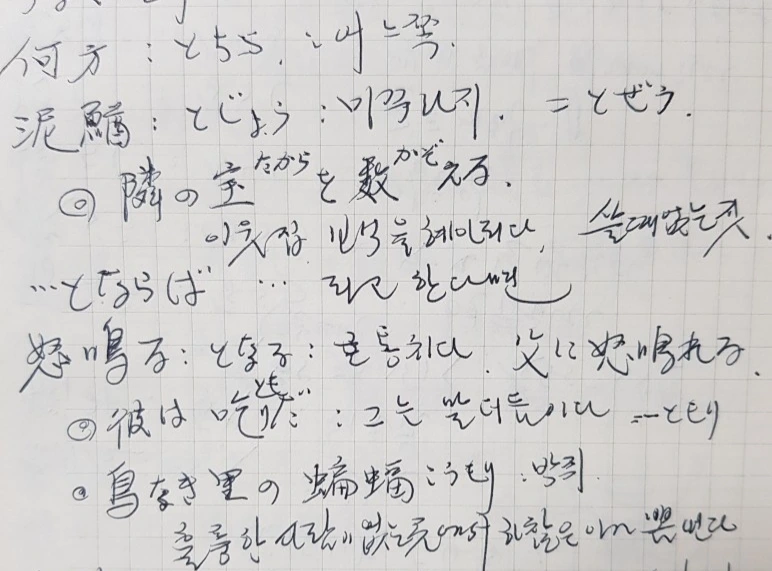 何方 : とちら. : 어느쪽.
泥鰌 : とじょう : 미꾸라지. = とぜう.
◎ 隣の宝たからを数かぞえる.
이웃집 보석을 헤아리다. 쓸데없는짓.
…とならば … 라고 한다면
怒鳴る : となる : 호통치다. 父に怒鳴れる.
◎ 彼は吃どもりだ : 그는 말더듬이다 = ども​り
◎ 鳥なき里の蝙蝠こうもり : 박쥐.
훌륭한 사람이 없는곳에서 하찮은